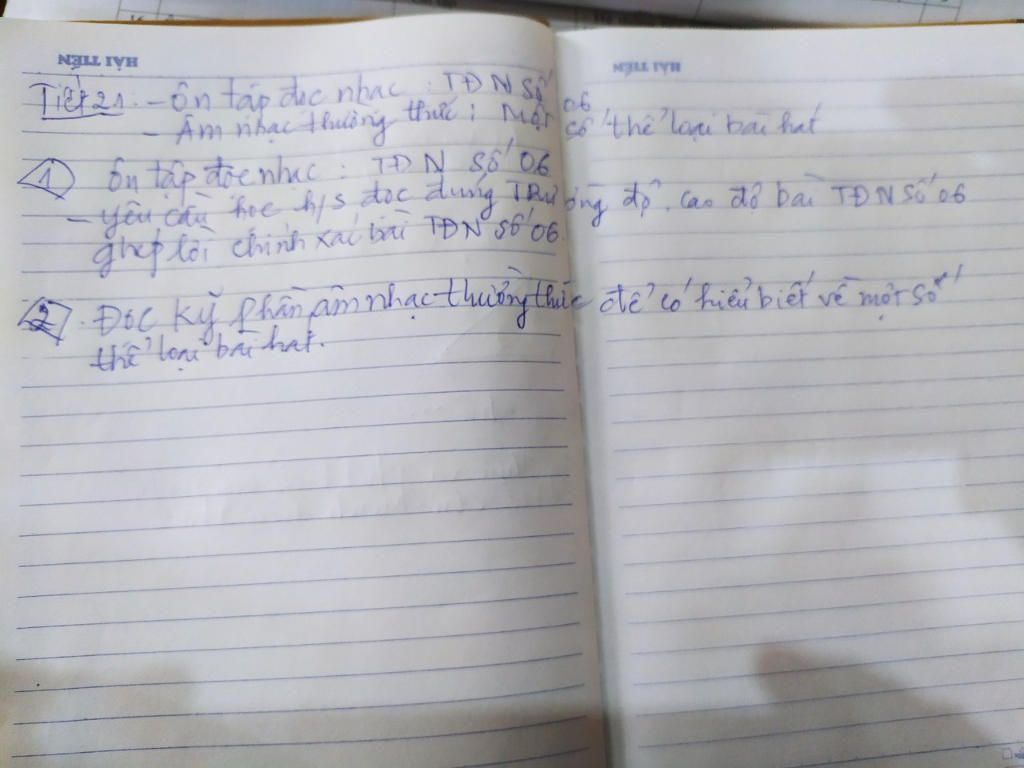 HẢI TIẾN
HẢI TIẾN
Tiết 21. - Ôn tập đọc nhạc : TĐN Số 06
- Âm nhạc thường thức : Một số thể loại bài hát
1 Ôn tập đọc nhạc : TĐN Số 06
- yêu cầu học h/s đọc đúng Trường độ, cao độ bài TĐN Số 06
ghép lời chính xác bài TĐN Số 06.
2. Đọc kỹ phần âm nhạc thường thức để có hiểu biết về một số
thể loại bài hát.